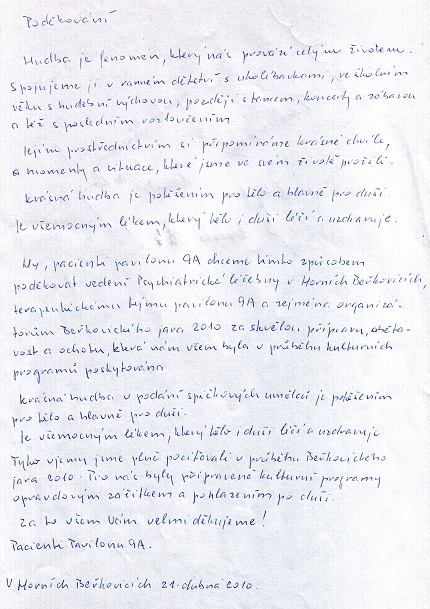 Poděkování
Hudba je fenomén, který nás provází celým životem.
Spojujeme ji v ranném dětství s ukolébavkami, ve školním
věku s hudební výchovou, později s tancem, koncerty a zábavou
a též s posledním rozloučením.
Jejím prostřednictvím si připomínáme krásné chvíle,
a momenty a situace, které jsme ve svém životě prožili.
Krásná hudba je potěšením pro tělo a hlavně pro duši.
Je všemocným lékem, který tělo i duši léčí a uzdravuje.
My, pacienti pavilonu 9A chceme tímto způsobem
poděkovat vedení Psychiatrické léčebny v Horních Beřkovicích,
terapeutickému týmu pavilonu 9A a zejména organizá-
torům Beřkovického jara 2010 za skvělou přípravu, oběta-
vost a ochotu, která nám všem byla v průběhu kulturních
programů poskytována
Krásná hudba v podání špičkových umělců je potěšením
pro tělo a hlavně pro duši.
Je všemocným lékem, který tělo i duši léčí a uzdravuje
Tyto vjemy jsme plně pociťovali v průběhu Beřkovického
jara 2010. Pro nás byly připravené kulturní programy
opravdovým zážitkem a pohlazením po duši.
Za to všem Vám velmi děkujeme!
Pacienti Pavilonu 9A.
V Horních Beřkovicích 21. dubna 2010.